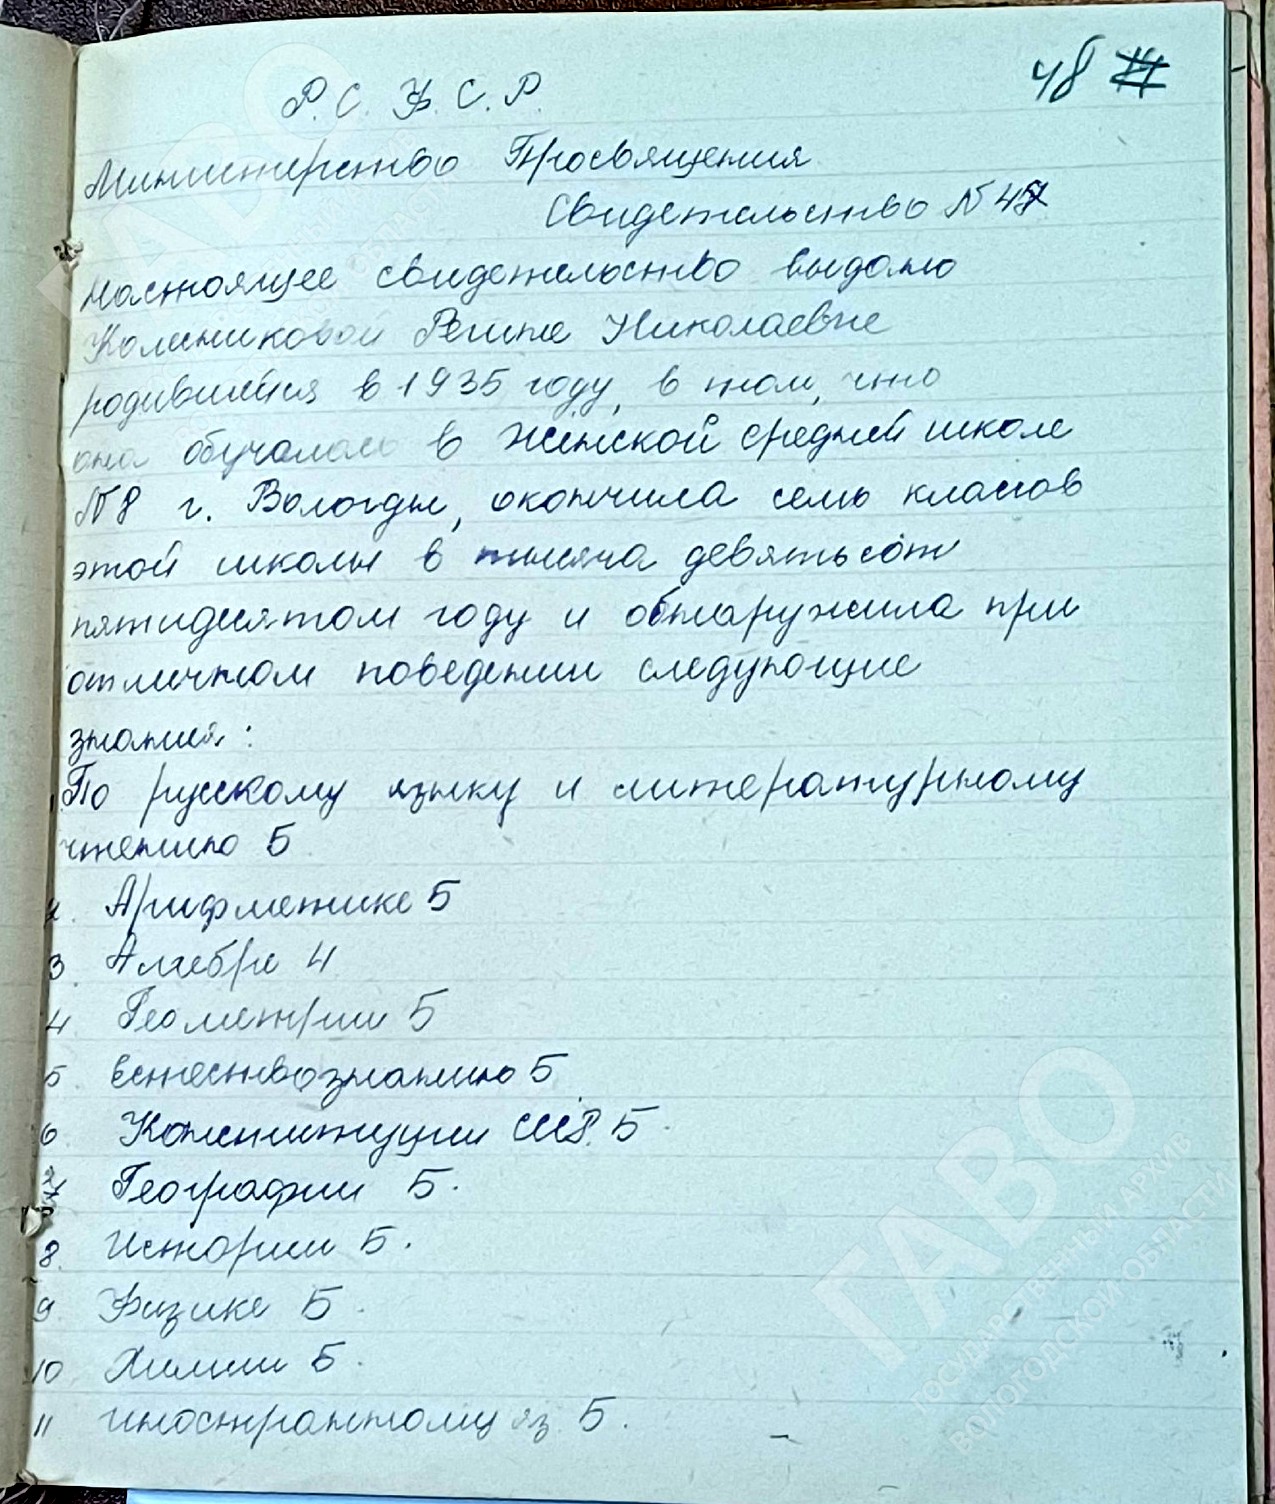 48
Р. С. Ф. С. Р.
Министерство Просвящения
Свидетельство N 47
Настоящее свидетельство выдано
Калининовой Регине Николаевне
родившейся в 1935 году, в том, что
она обучалась в Женской средней школе
N 8 г. Вологды, окончила семь классов
этой школы в тысяча девятьсот
пятидесятом году и обнаружила при
отличном поведении следующие
знания:
1 По русскому языку и литературному
чтению 5
2. Арифметике 5
3. Алгебре 4
4 Геометрии 5
5 Естествознанию 5
6. Конституции СССР. 5.
7 Географии 5.
8. Истории 5.
9. Физике 5.
10 Химии 5.
11 иностранному яз 5.
ГАВО
ГОСУДАРСТВЕННЫЙ АРХИВ
ВОЛОГОДСКОЙ ОБЛАСТИ